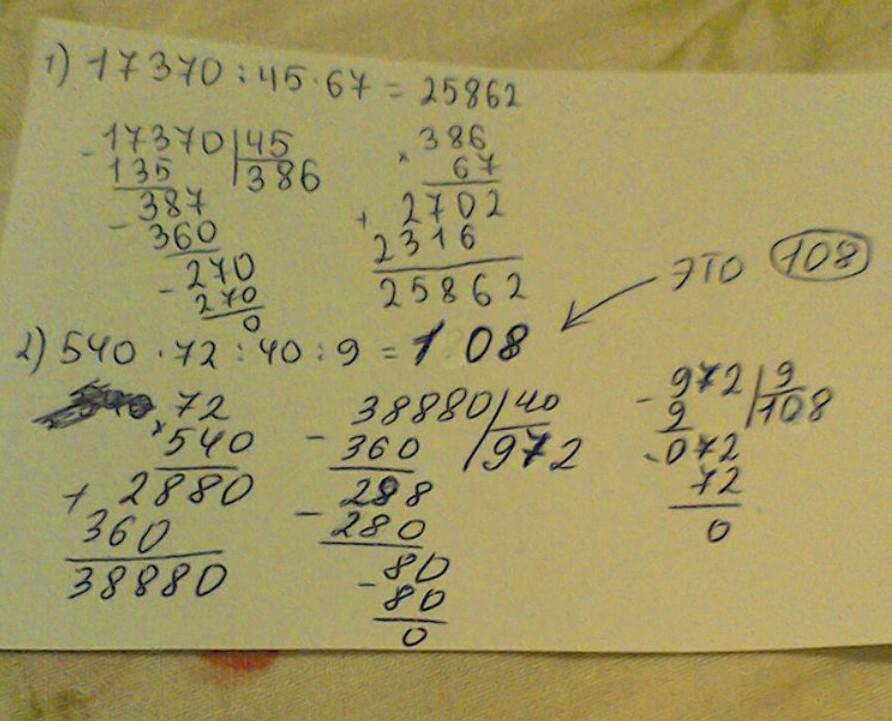 1) 17370 : 45 · 67 = 25862
- 17370 | 45
135 | 386
387
- 360
270
- 270
0
× 386
67
+ 2702
2316
25862
это 108
2) 540 · 72 : 40 : 9 = 108
72
× 540
+ 2880
360
38880
38880 | 40
- 360 | 972
288
- 280
80
- 80
0
- 972 | 9
9 | 108
- 072
72
0